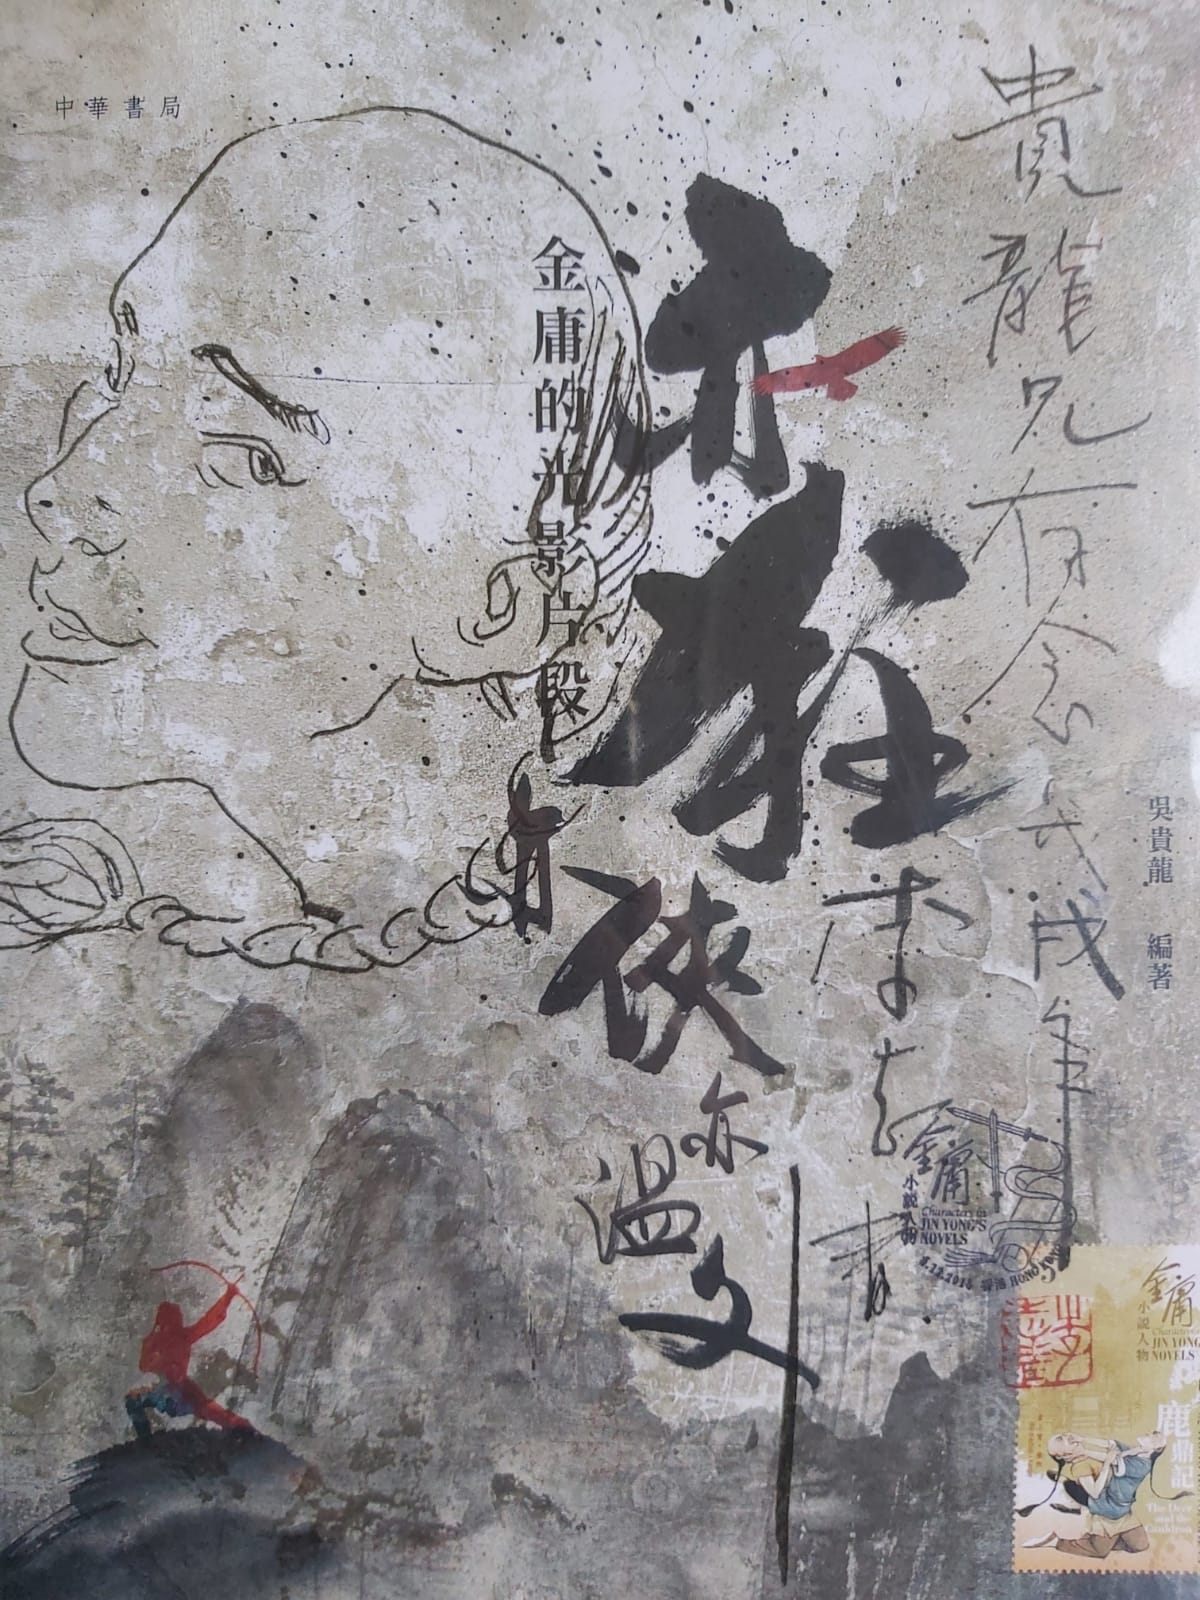 中華書局
貴龍兄存念
戊戌年
李志清
亦狂
亦俠
亦溫文
金庸的光影片段
吳貴龍 編著
金庸
小說人物
Characters in
JIN YONG'S
NOVELS
6.12.2018 香港 HONG KONG
金庸
小說人物
JIN YONG
NOVELS
鹿鼎記
The Deer
and the
Cauldron